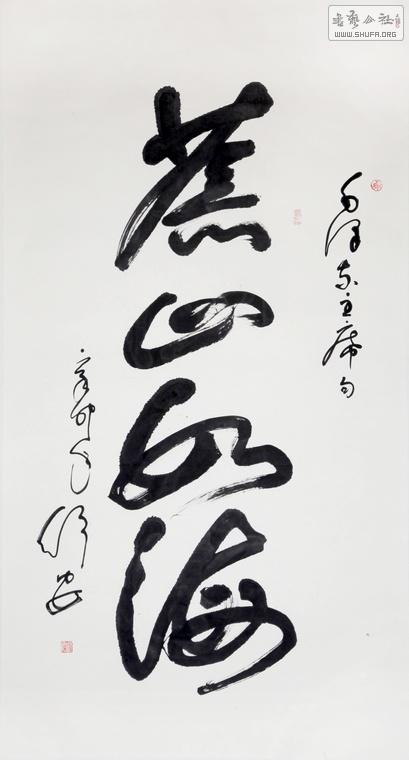 書藝公社
WWW.SHUFA.ORG
毛泽东主席句
苍山如海
辛卯年